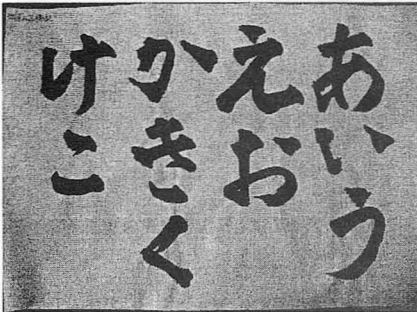 あいう
えお
かきく
けこ